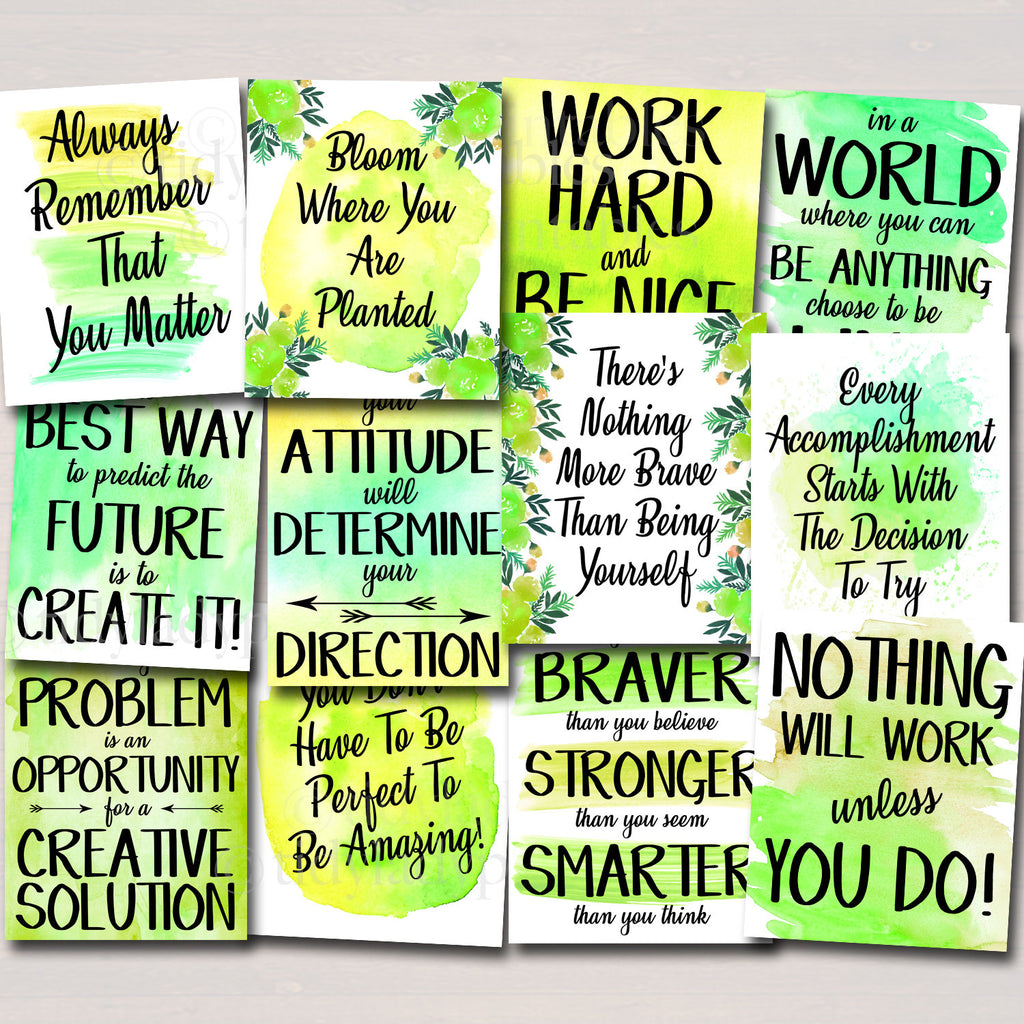 Always
Remember
That
You Matter
Bloom
Where You
Are
Planted
WORK
HARD
and
BE NICE
in a
WORLD
where you can
BE ANYTHING
choose to be
BEST WAY
to predict the
FUTURE
is to
CREATE IT!
your
ATTITUDE
will
DETERMINE
your
DIRECTION
There's
Nothing
More Brave
Than Being
Yourself
Every
Accomplishment
Starts With
The Decision
To Try
PROBLEM
is an
OPPORTUNITY
for a
CREATIVE
SOLUTION
You Don't
Have To Be
Perfect To
Be Amazing!
BRAVER
than you believe
STRONGER
than you seem
SMARTER
than you think
NOTHING
WILL WORK
unless
YOU DO!